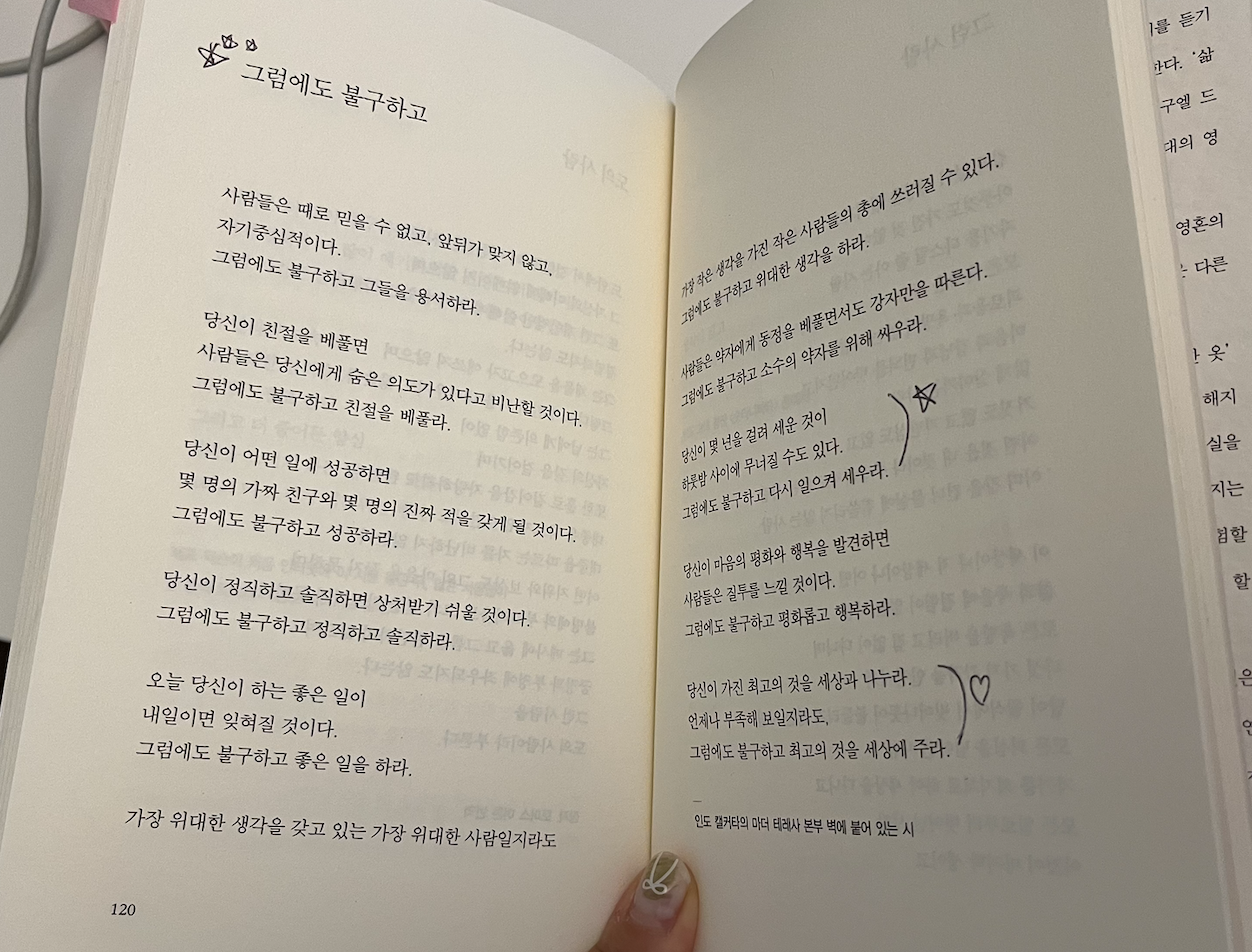 그럼에도 불구하고
사람들은 때로 믿을 수 없고, 앞뒤가 맞지 않고,
자기중심적이다.
그럼에도 불구하고 그들을 용서하라.
당신이 친절을 베풀면
사람들은 당신에게 숨은 의도가 있다고 비난할 것이다.
그럼에도 불구하고 친절을 베풀라.
당신이 어떤 일에 성공하면
몇 명의 가짜 친구와 몇 명의 진짜 적을 갖게 될 것이다.
그럼에도 불구하고 성공하라.
당신이 정직하고 솔직하면 상처받기 쉬울 것이다.
그럼에도 불구하고 정직하고 솔직하라.
오늘 당신이 하는 좋은 일이
내일이면 잊혀질 것이다.
그럼에도 불구하고 좋은 일을 하라.
가장 위대한 생각을 갖고 있는 가장 위대한 사람일지라도
120
가장 작은 생각을 가진 작은 사람들의 총에 쓰러질 수 있다.
그럼에도 불구하고 위대한 생각을 하라.
사람들은 약자에게 동정을 베풀면서도 강자만을 따른다.
그럼에도 불구하고 소수의 약자를 위해 싸우라.
당신이 몇 년을 걸려 세운 것이
하룻밤 사이에 무너질 수도 있다.
그럼에도 불구하고 다시 일으켜 세우라.
당신이 마음의 평화와 행복을 발견하면
사람들은 질투를 느낄 것이다.
그럼에도 불구하고 평화롭고 행복하라.
당신이 가진 최고의 것을 세상과 나누라.
언제나 부족해 보일지라도,
그럼에도 불구하고 최고의 것을 세상에 주라.
인도 캘커타의 마더 테레사 본부 벽에 붙어 있는 시
를 듣기
한다. '삶
구엘 드
대의 영
영혼의
다른
옷'
해지
실을
지는
험할
할